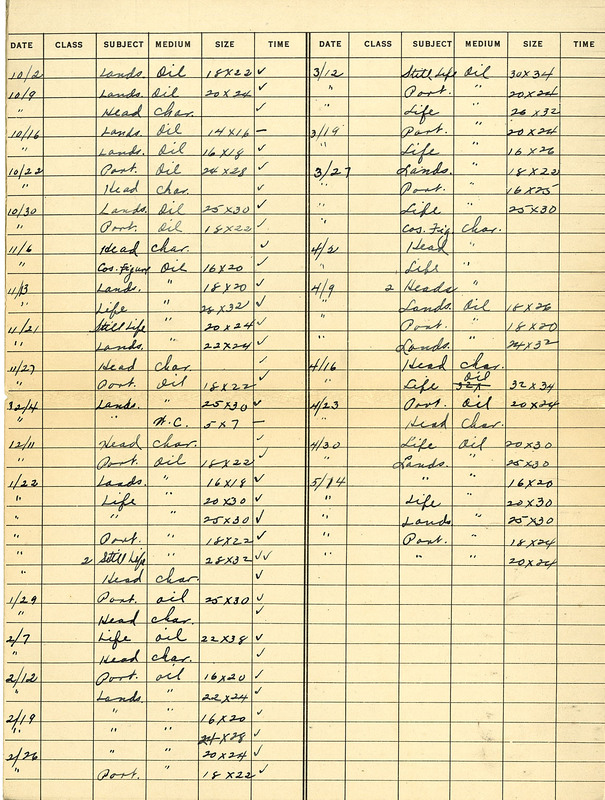 DATE CLASS SUBJECT MEDIUM SIZE TIME
10/2 Lands. Oil 18X22 ✓
10/9 Lands. Oil 20X24 ✓
" Head Char. ✓
10/16 Lands. Oil 14X16 –
" Lands. Oil 16X18 ✓
10/22 Port. Oil 24X28 ✓
" Head Char. ✓
10/30 Lands. Oil 25X30 ✓
" Port. Oil 18X22 ✓
11/6 Head Char. ✓
" Cos. Figure Oil 16X20 ✓
11/3 Lands. " 18X20 ✓
" Life " 26X32 ✓
11/21 Still Life " 20X24 ✓
" Lands. " 22X24 ✓
11/27 Head Char. ✓
" Port. Oil 18X22 ✓
12/4 Lands. " 25X30 ✓
" " W.C. 5X7 –
12/11 Head Char. ✓
" Port. Oil 18X22 ✓
1/22 Lands. " 16X18 ✓
" Life " 20X30 ✓
" " " 25X30 ✓
" Port. " 18X22 ✓
" 2 Still Life " 28X32 ✓✓
" Head Char. ✓
1/29 Port. Oil 25X30 ✓
" Head Char. ✓
2/7 Life Oil 22X38 ✓
" Head Char. ✓
2/12 Port. Oil 16X20 ✓
" Lands. " 22X24 ✓
2/19 " " 16X20 ✓
" " " 24X28 ✓
2/26 " " 20X24 ✓
" Port. " 18X22 ✓
DATE CLASS SUBJECT MEDIUM SIZE TIME
3/12 Still Life Oil 30X34
" Port. " 20X24
" Life " 26X32
3/19 Port. " 20X24
" Life " 16X26
3/27 Lands. " 18X22
" Port. " 16X25
" Life " 25X30
" Cos. Fig. Char.
4/2 Head "
" Life "
4/9 2 Heads "
" Lands. Oil 18X26
" Port. " 18X20
" Lands. " 24X32
4/16 Head Char.
" Life Oil 32X34
4/23 Port. Oil 20X24
" Head Char.
4/30 Life Oil 20X30
" Lands. " 25X30
5/14 " " 16X20
" Life " 20X30
" Lands " 25X30
" Port. " 18X24
" " " 20X24